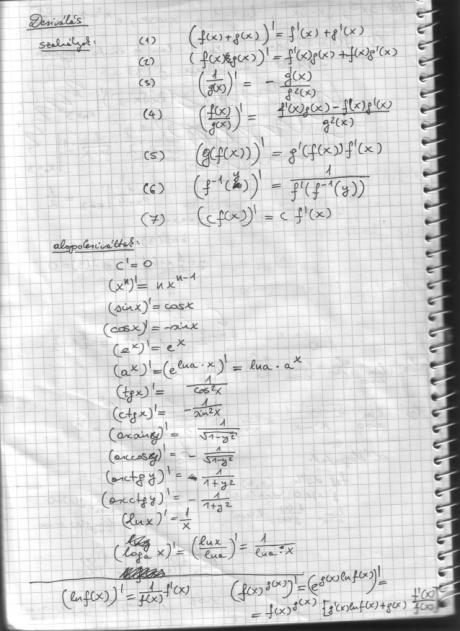 Deriválás
szabályok:
(1) (f(x)+g(x))' = f'(x)+g'(x)
(2) (f(x)g(x))' = f'(x)g(x)+f(x)g'(x)
(3) (1/g(x))' = - g(x)/g²(x)
(4) (f(x)/g(x))' = f'(x)g(x)-f(x)g'(x)/g²(x)
(5) (g(f(x)))' = g'(f(x))f'(x)
(6) (f⁻¹(y))' = 1/f'(f⁻¹(y))
(7) (cf(x))' = c f'(x)
alapderiváltak:
c' = 0
(xⁿ)' = n xⁿ⁻¹
(sinx)' = cosx
(cosx)' = -sinx
(eˣ)' = eˣ
(aˣ)' = (e^{lna·x})' = lna · aˣ
(tgx)' = 1/cos²x
(ctgx)' = - 1/sin²x
(arcsiny)' = 1/√1-y²
(arccosy)' = - 1/√1-y²
(arctgy)' = 1/1+y²
(arcctgy)' = - 1/1+y²
(lnx)' = 1/x
(logₐx)' = (lnx/lna)' = 1/lna·x
(lnf(x))' = 1/f(x) f'(x) (f(x)^{g(x)})' = (e^{g(x)lnf(x)})' =
= f(x)^{g(x)} [g'(x)lnf(x)+g(x) f'(x)/f(x)